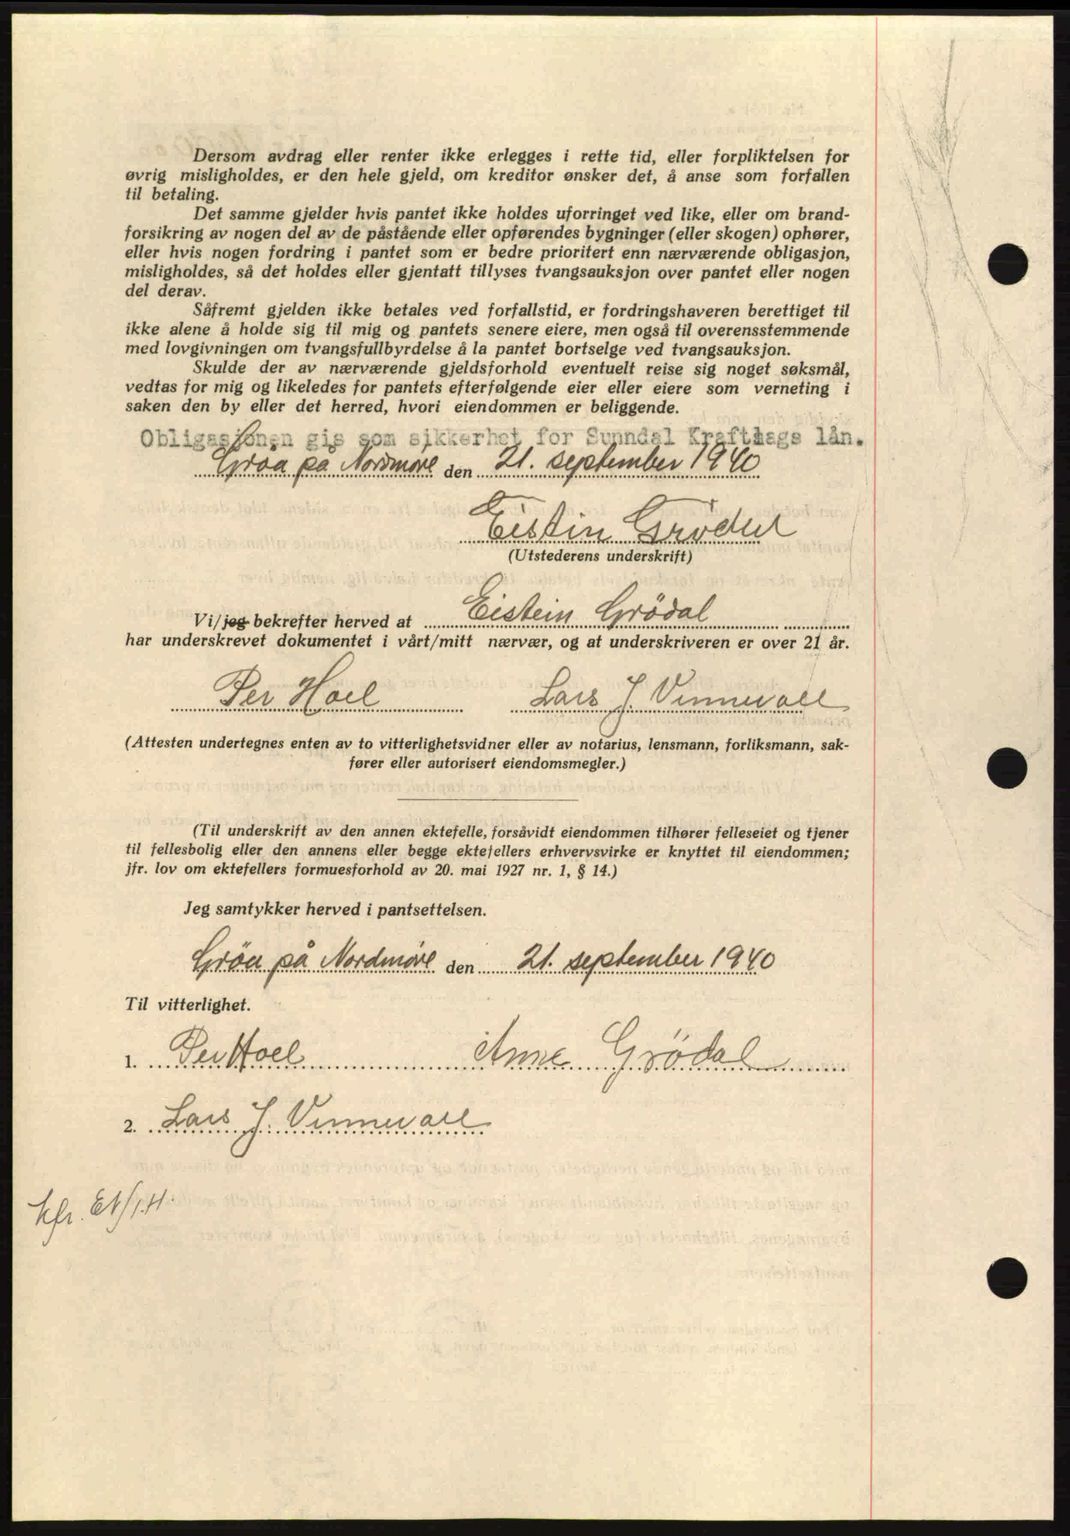 Dersom avdrag eller renter ikke erlegges i rette tid, eller forpliktelsen for
øvrig misligholdes, er den hele gjeld, om kreditor ønsker det, å anse som forfallen
til betaling.
Det samme gjelder hvis pantet ikke holdes uforringet ved like, eller om brand-
forsikring av nogen del av de påstående eller opførendes bygninger (eller skogen) ophører,
eller hvis nogen fordring i pantet som er bedre prioritert enn nærværende obligasjon,
misligholdes, så det holdes eller gjentatt tillyses tvangsauksjon over pantet eller nogen
del derav.
Såfremt gjelden ikke betales ved forfallstid, er fordringshaveren berettiget til
ikke alene å holde sig til mig og pantets senere eiere, men også til overensstemmende
med lovgivningen om tvangsfullbyrdelse å la pantet bortselge ved tvangsauksjon.
Skulde der av nærværende gjeldsforhold eventuelt reise sig noget søksmål,
vedtas for mig og likeledes for pantets efterfølgende eier eller eiere som verneting i
saken den by eller det herred, hvori eiendommen er beliggende.
Obligasjonen gis som sikkerhet for Sunndal Kraftlags lån.
Grøa på Nordmøre den 21. september 1940
Eistein Grødal
(Utstederens underskrift)
Vi/jeg bekrefter herved at Eistein Grödal
har underskrevet dokumentet i vårt/mitt nærvær, og at underskriveren er over 21 år.
Per Hoel Lars J. Vinnevoll
(Attesten undertegnes enten av to vitterlighetsvidner eller av notarius, lensmann, forliksmann, sak-
fører eller autorisert eiendomsmegler.)
(Til underskrift av den annen ektefelle, forsåvidt eiendommen tilhører felleseiet og tjener
til fellesbolig eller den annens eller begge ektefellers erhvervsvirke er knyttet til eiendommen;
jfr. lov om ektefellers formuesforhold av 20. mai 1927 nr. 1, § 14.)
Jeg samtykker herved i pantsettelsen.
Gröa på Nordmøre den 21. september 1940
Til vitterlighet.
1. Per Hoel Anne Grödal
2. Lars J. Vinnevoll
kfr. EN/I.H.